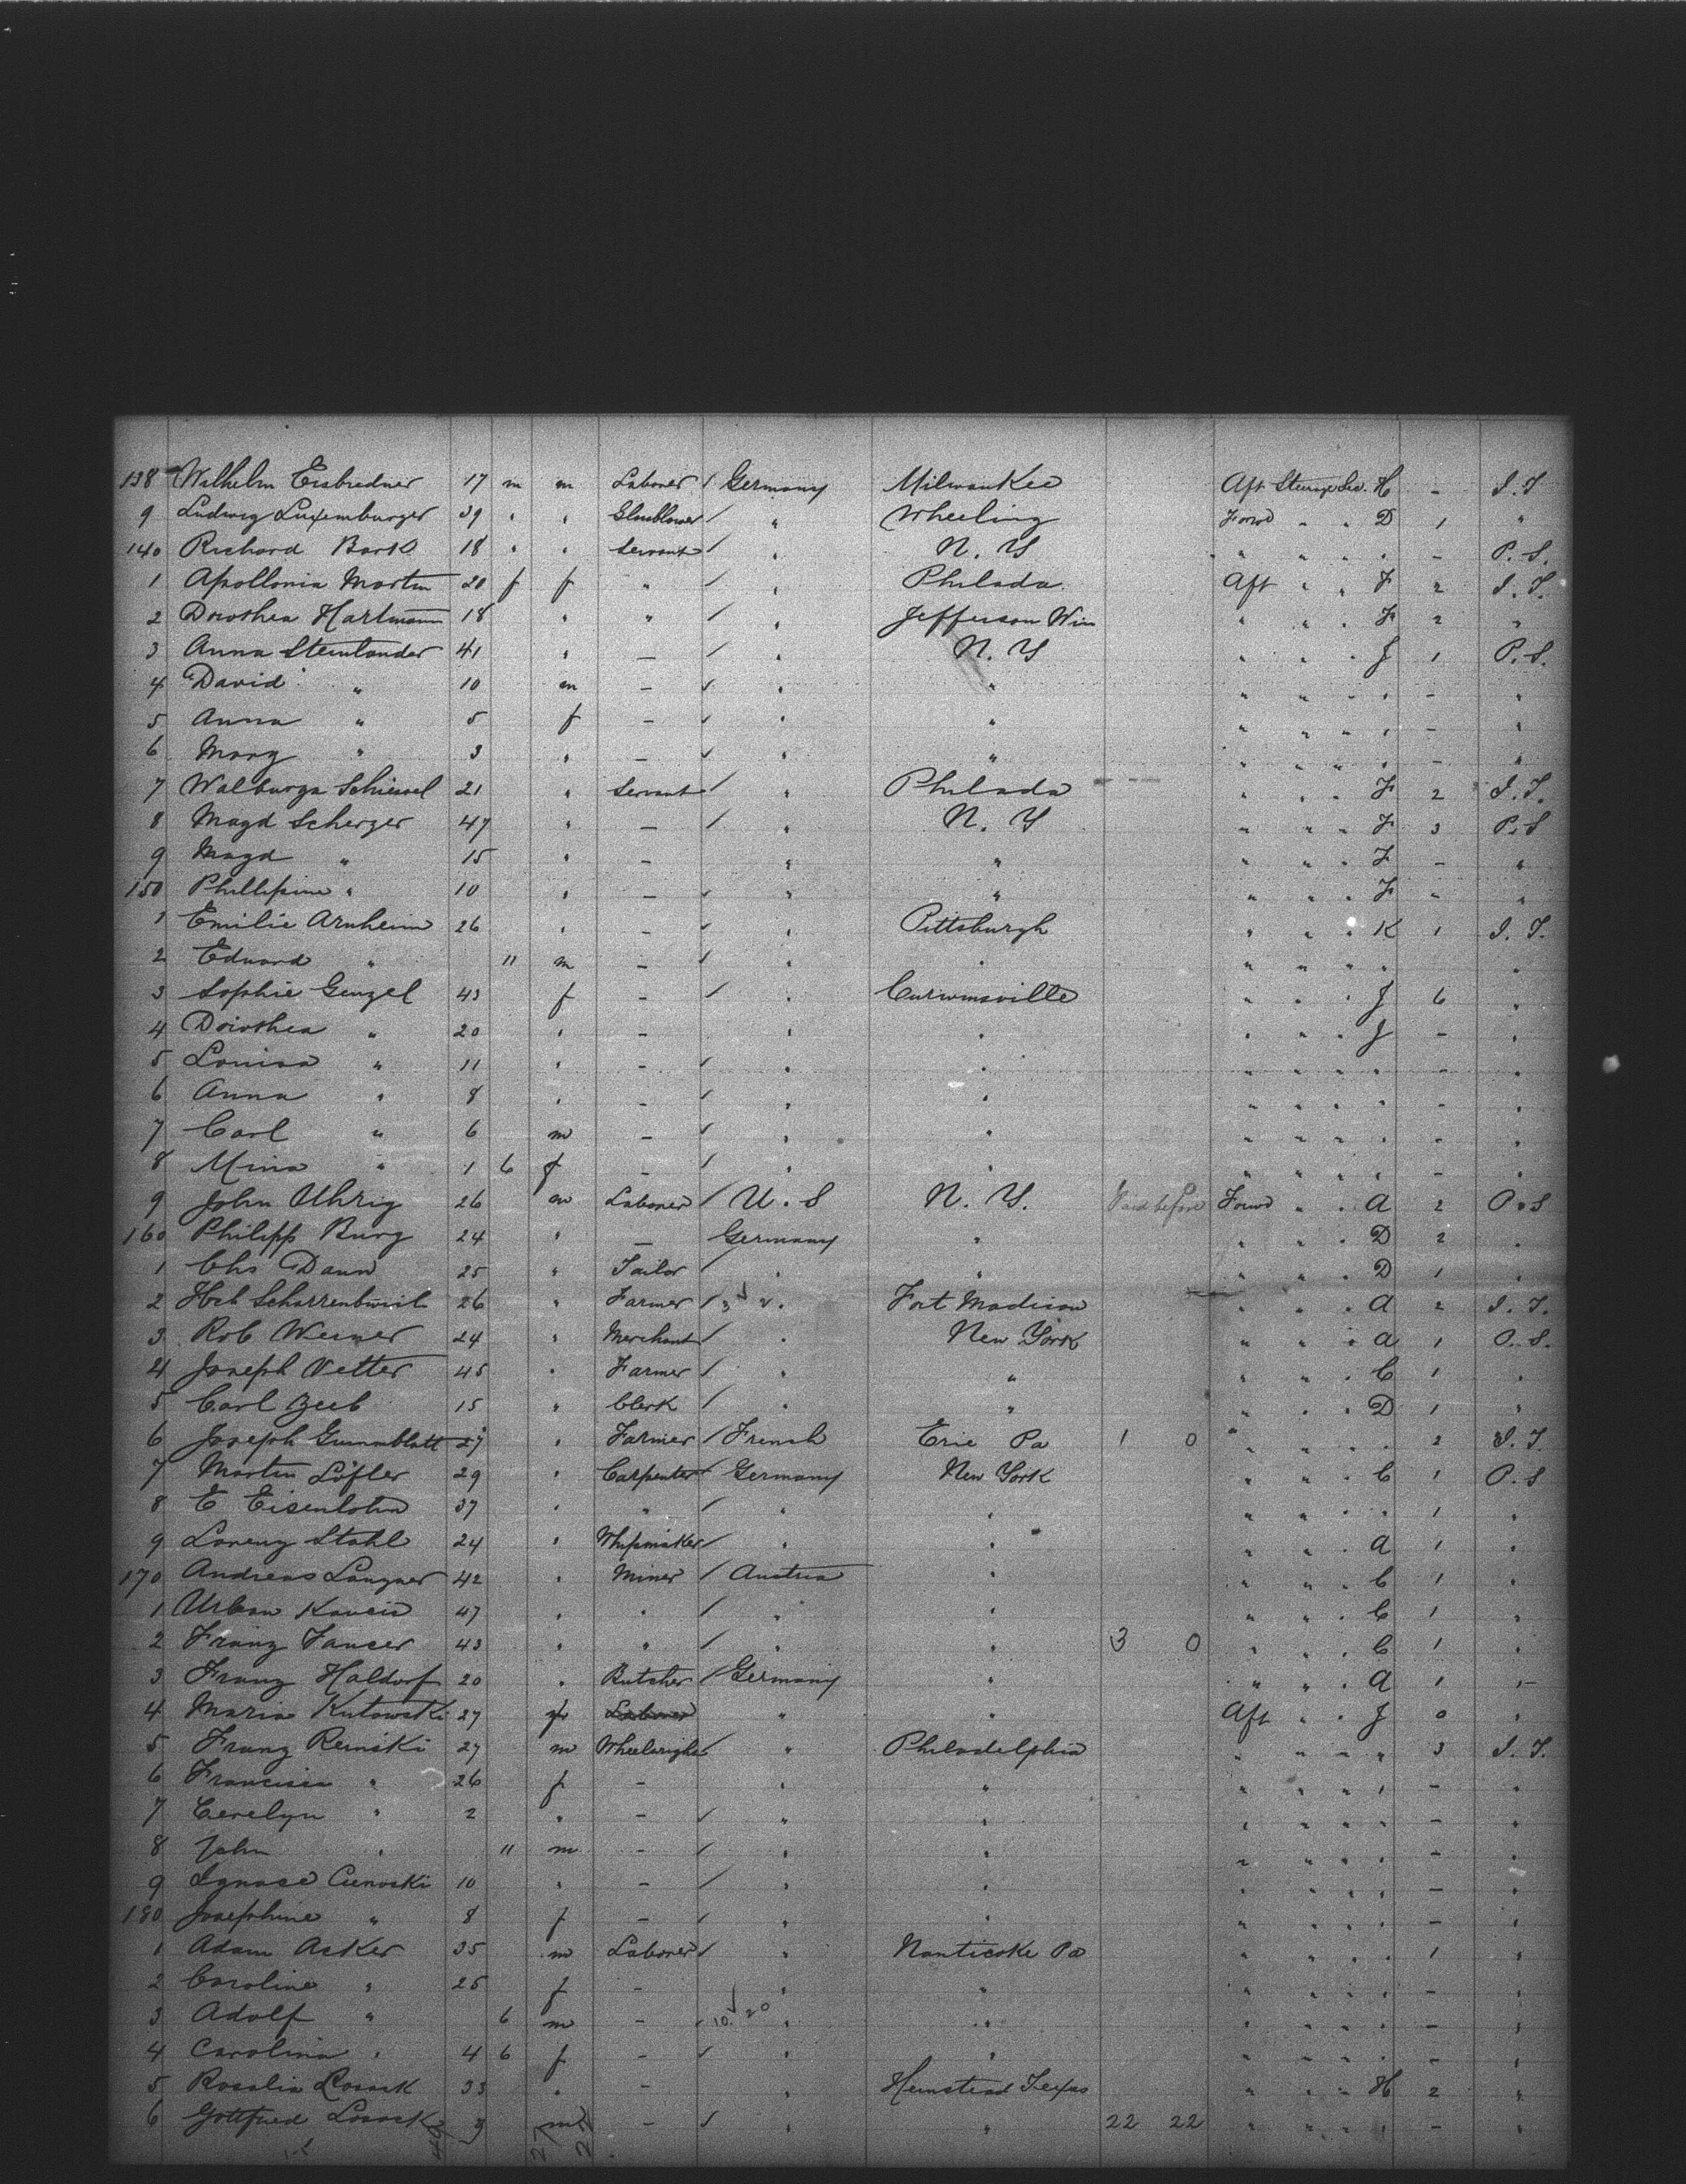 138 Wilhelm Eisbredner 17 m m Laborer / Germany Milwaukee Aft Steerage Sec. H - I.T
9 Ludwig Luxemburger 39 " " Glassblower / " Wheeling Forwd " " D 1 "
140 Richard Bark 18 " " Servant / " N. Y " " " " - P.S.
1 Apollonia Martin 20 f f " / " Philada. Aft " " F 2 I.T.
2 Dorothea Hartmann 18 " " / " Jefferson Win " " " F 2 "
3 Anna Steinlander 41 " - / " N. Y " " " J 1 P.S.
4 David " 10 m - ✓ " " " " " " - "
5 Anna " 5 f - ✓ " " " " " " - "
6 Marg " 3 " - ✓ " " " " " " - "
7 Walburga Schiessel 21 " Servant / " Philada " " " F 2 I.T.
8 Magd Scherzer 47 " - / " N. Y " " " F 3 P.S
9 Magd " 15 " - " " " " " F - "
150 Phillipine " 10 " - ✓ " " " " " F - "
1 Emilie Arnheim 26 " - ✓ " Pittsburgh " " " K 1 I.T.
2 Eduard " 11 m - / " " " " " " "
3 Sophie Genzel 43 f - / " Curwinsville " " " J 6 "
4 Dorothea " 20 " - " " " " " J - "
5 Louisa " 11 " - / " " " " " " - "
6 Anna " 8 " - / " " " " " " - "
7 Carl " 6 m - ✓ " " " " " " - "
8 Mina " 1 6 f - / " " " " " " - "
9 John Uhrig 26 m Laborer / U.S N. Y. Paid before Forwd " " A 2 P.S
160 Philipp Burg 24 " - Germany " " " " D 2 "
1 Chs Daum 25 " Tailor / " " " " " D 1 "
2 Hch 26 " Farmer / " Fort Madison " " " A 2 I.T.
3 Rob Werner 24 " Merchant / " New York " " " A 1 P.S.
4 Joseph Vetter 45 " Farmer / " " " " " C 1 "
5 Carl Zeeb 15 " Clerk / " " " " " D 1 "
6 Joseph Grummblatt 27 " Farmer / French Erie Pa 1 0 " " " " 2 I.T.
7 Martin Löfler 29 " Carpenter / Germany New York " " " C 1 P.S
8 E Eisenlohn 37 " " / " " " " " " 1 "
9 Lorenz Stahl 24 " Whipmaker / " " " " " A 1 "
170 Andreas Langner 42 " Miner / Austria " " " " C 1 "
1 Urban 47 " " / " " " " " C 1 "
2 Franz 43 " " / " " 3 0 " " " C 1 "
3 Franz Haldorf 20 " Butcher / Germany " " " " A 1 "
4 Maria Kutowski 27 f Laborer " " Aft " " J 0 "
5 Franz Reinski 27 m Wheelwright / " Philadelphia " " " " 3 I.T.
6 Francisca " 26 f - " " " " " " - "
7 " 2 " - / " " " " " " - "
8 John " 11 m - / " " " " " " - "
9 Ignase 10 " - / " " " " " " - "
180 Josephine " 8 f - / " " " " " " - "
1 Adam Acker 35 m Laborer / " Nanticoke Pa " " " " 1 "
2 Caroline " 25 f - " " " " " " - "
3 Adolf " 6 m - 10 ✓ 20 " " " " " " - "
4 Carolina " 4 6 f - ✓ " " " " " " - "
5 Rosalia 33 " - " Hemstead Texas " " " H 2 "
6 Gottfried 9 m - ✓ " " 22 22 " " " " - "